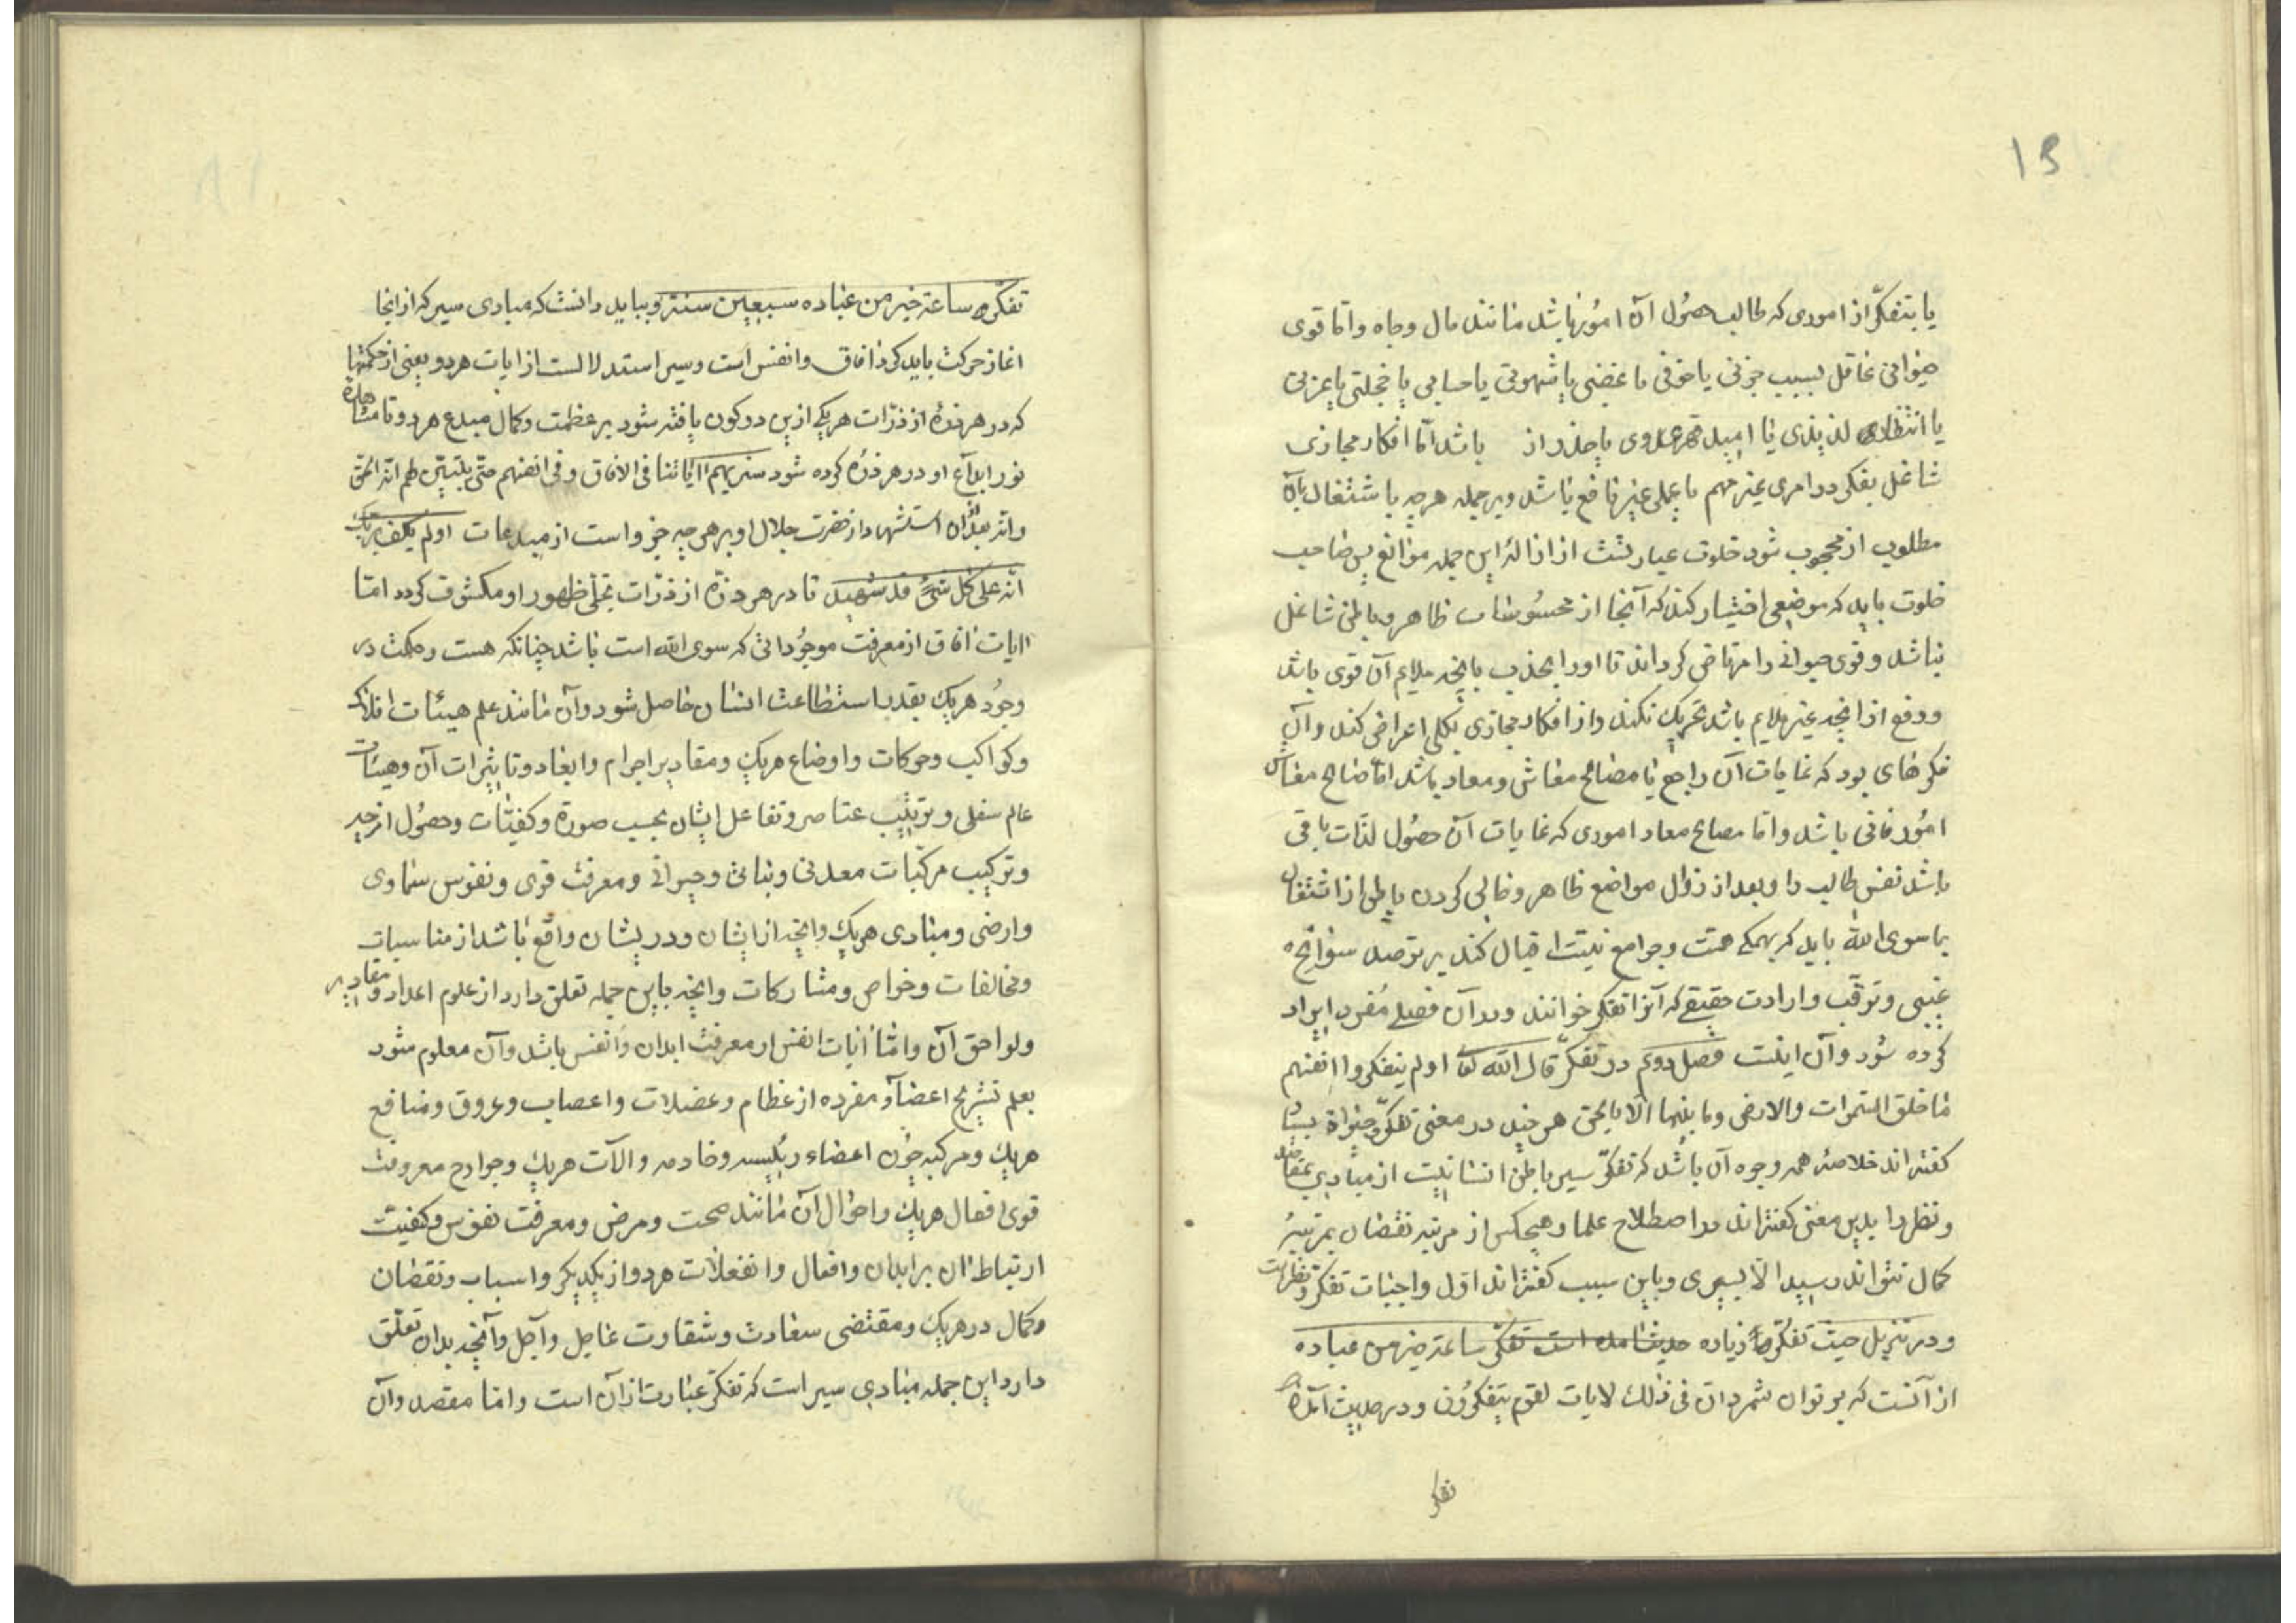 13
یا بتفکر از اموری که طالب حصول آن امور باشد مانند مال و جاه واما قوی
حیوانی غافل بسبب حزنی یا خوفی یا غضبی یا شهوتی یا حسابی یا خجلتی یا عزتی
یا انتظار لذیذی یا امید قهر عدوی یا حذر از باشد اما افکار مجازی
شاغل بفکر در امری غیر مهم یا عملی غیر نافع باشد وبر جمله هرچه باشتغال بآن
مطلوب از محجوب شود خلوت عبارتست از ازالهٔ این جمله موانع پس صاحب
خلوت باید که موضعی اختیار کند که آنجا از محسوسات ظاهر وباطن شاغل
نباشد وقوی حیوانی را مرتاض کرداند تا اورا بجذب بانچه ملایم آن قوی باشد
ودفع از انچه غیر ملایم باشد تحریک نکند واز افکار مجازی بکلی اعراض کند وآن
فکرهای بود که غایات آن راجع با مصالح معاش ومعاد باشد اما مصالح معاش
امور فانی باشد واما مصالح معاد اموری که غایات آن حصول لذات باقی
باشد نفس طالب را وبعد از زوال مواضع ظاهر وخالی کردن باطن از اشتغال
بما سوی الله باید که بهمکی همت وجوامع نیت اقبال کند بر ترصد سوانح
غیبی وترقب وارادت حقیقی که آنرا تفکر خوانند ودر آن فصلی مفرد ایراد
کرده شود وآن اینست فصل دوم در تفکر قال الله تعا اولم یتفکروا انفسهم
ما خلق السموات والارض وما بینهما الا بالحق هر چند در معنی تفکر وجوه بسیار
کفته اند خلاصهٔ همه وجوه آن باشد که تفکر سیر باطن انسانیست از مبادی بمقاصد
ونظر را بدین معنی کفته اند در اصطلاح علما وهیچکس از مرتبه نقصان بمرتبهٔ
کمال نتواند رسید الا بسیری وباین سبب کفته اند اول واجبات تفکر ونظر است
ودر تنزیل حیث تفکر زیاده حدیث آمده است تفکر ساعة خیر من عباده
از آنست که بر توان شمرد ان فی ذلک لایات لقوم یتفکرون ودر حدیث آمده
تفکر
تفکر ساعة خیر من عباده سبعین سنة وبباید دانست که مبادی سیر که از انجا
اغاز حرکت باید کرد افاق وانفس است وسیر استدلالست از ایات هردو یعنی از حکمتها
که در هر ذرهٔ از ذرات هر یکی ازین دو کون یافته شود بر عظمت وکمال مبدع هر دو تا مشاهده
نور ابداع او در هر ذره کرده شود سنریهم اایاتنا فی الافاق وفی انفسهم حتی یتبین لهم انه الحق
وانه بعد ازان استشهاد از حضرت جلال او بر هرچه جز واست از مبدعات اولم یکف بربک
انه علی کل شئ قد شهید تا در هر ذرهٔ از ذرات تجلی ظهور او مکشوف کردد اما
اایات افاق از معرفت موجوداتی که سوی الله است باشد چنانکه هست وحکمت در
وجود هریک بقدر استطاعت انسان حاصل شود وآن مانند علم هیئات افلاک
وکواکب وحرکات واوضاع هریک ومقادیر اجرام وابعاد وتاثیرات آن وهیئات
عالم سفلی وترتیب عناصر وتفاعل ایشان بحسب صورة وکیفیات وحصول امزجه
وترکیب مرکبات معدنی ونباتی وحیوانی ومعرفت قوی ونفوس سماوی
وارضی ومبادی هریک وانچه از ایشان ودر ایشان واقع باشد از مناسبات
ومخالفات وخواص ومشارکات وانچه باین جمله تعلق دارد از علوم اعداد ومقادیر
ولواحق آن واما آیات انفس از معرفت ابدان وانفس باشد وآن معلوم شود
بعلم تشریح اعضاء مفرده از عظام وعضلات واعصاب وعروق ومنافع
هریک ومرکبه چون اعضاء رئیسه وخادمه والآت هریک وجوارح معرفت
قوی افعال هریک واحوال آن مانند صحت ومرض ومعرفت نفوس وکیفیت
ارتباط ان بر ابدان وافعال وانفعلات هردو از یکدیکر واسباب ونقصان
وکمال در هریک ومقتضی سعادت وشقاوت عاجل وآجل وآنچه بدان تعلق
دارد این جمله مبادی سیر است که تفکر عبارت از آن است واما مقصد وآن